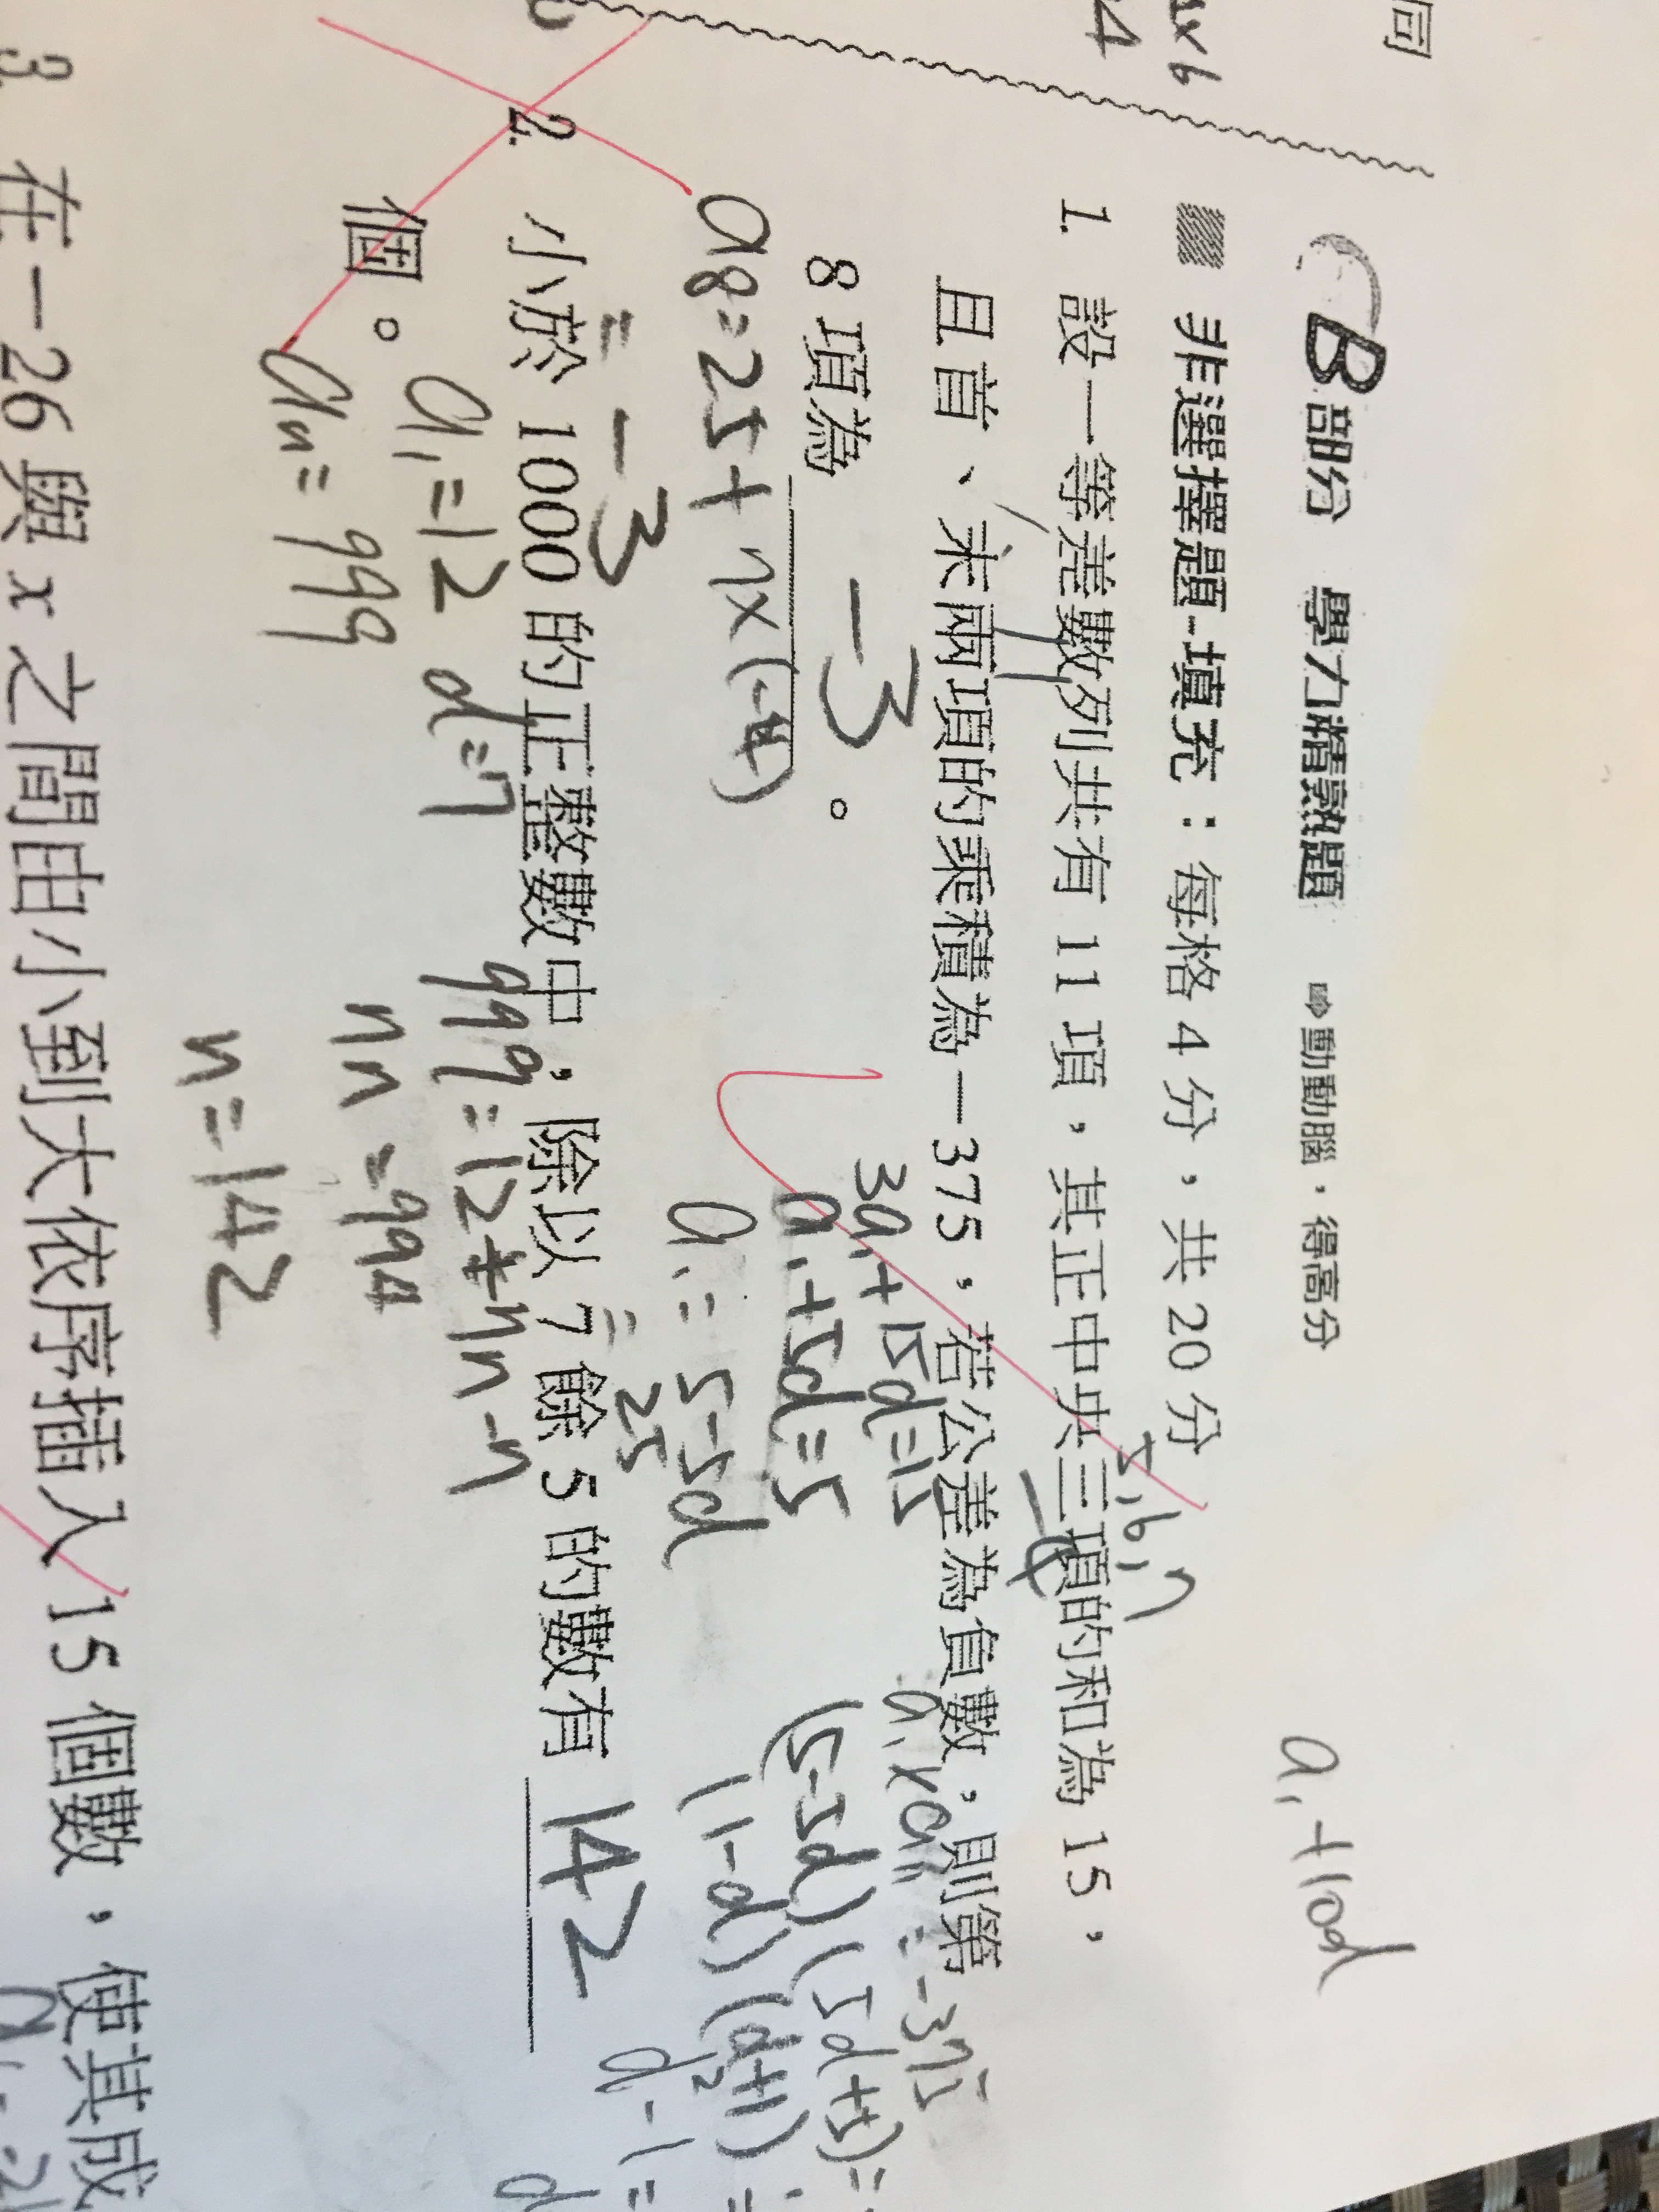 同
ax6
B部分 學力精熟題 ⇨動動腦，得高分
a₁+10d
■ 非選擇題-填充：每格 4 分，共 20 分
5,6,7
1. 設一等差數列共有 11 項，其正中央三項的和為 15，
-4
且首、末兩項的乘積為－375，若公差為負數，則第
8 項為 -3 。
3a₁+15d=15
a₁+5d=5
a₁=5-5d
25
a₁×a₁₁=-375
(5-5d)(5d+5)=
(1-d)(d+1)=
d²-1=
d
a8=25+7×(-4)
=-3
2. 小於 1000 的正整數中，除以 7 餘 5 的數有 142
個。
a₁=12 d=7
an=999
999=12+7n-7
7n=994
n=142
3. 在－26 與 x 之間由小到大依序插入 15 個數，使其成